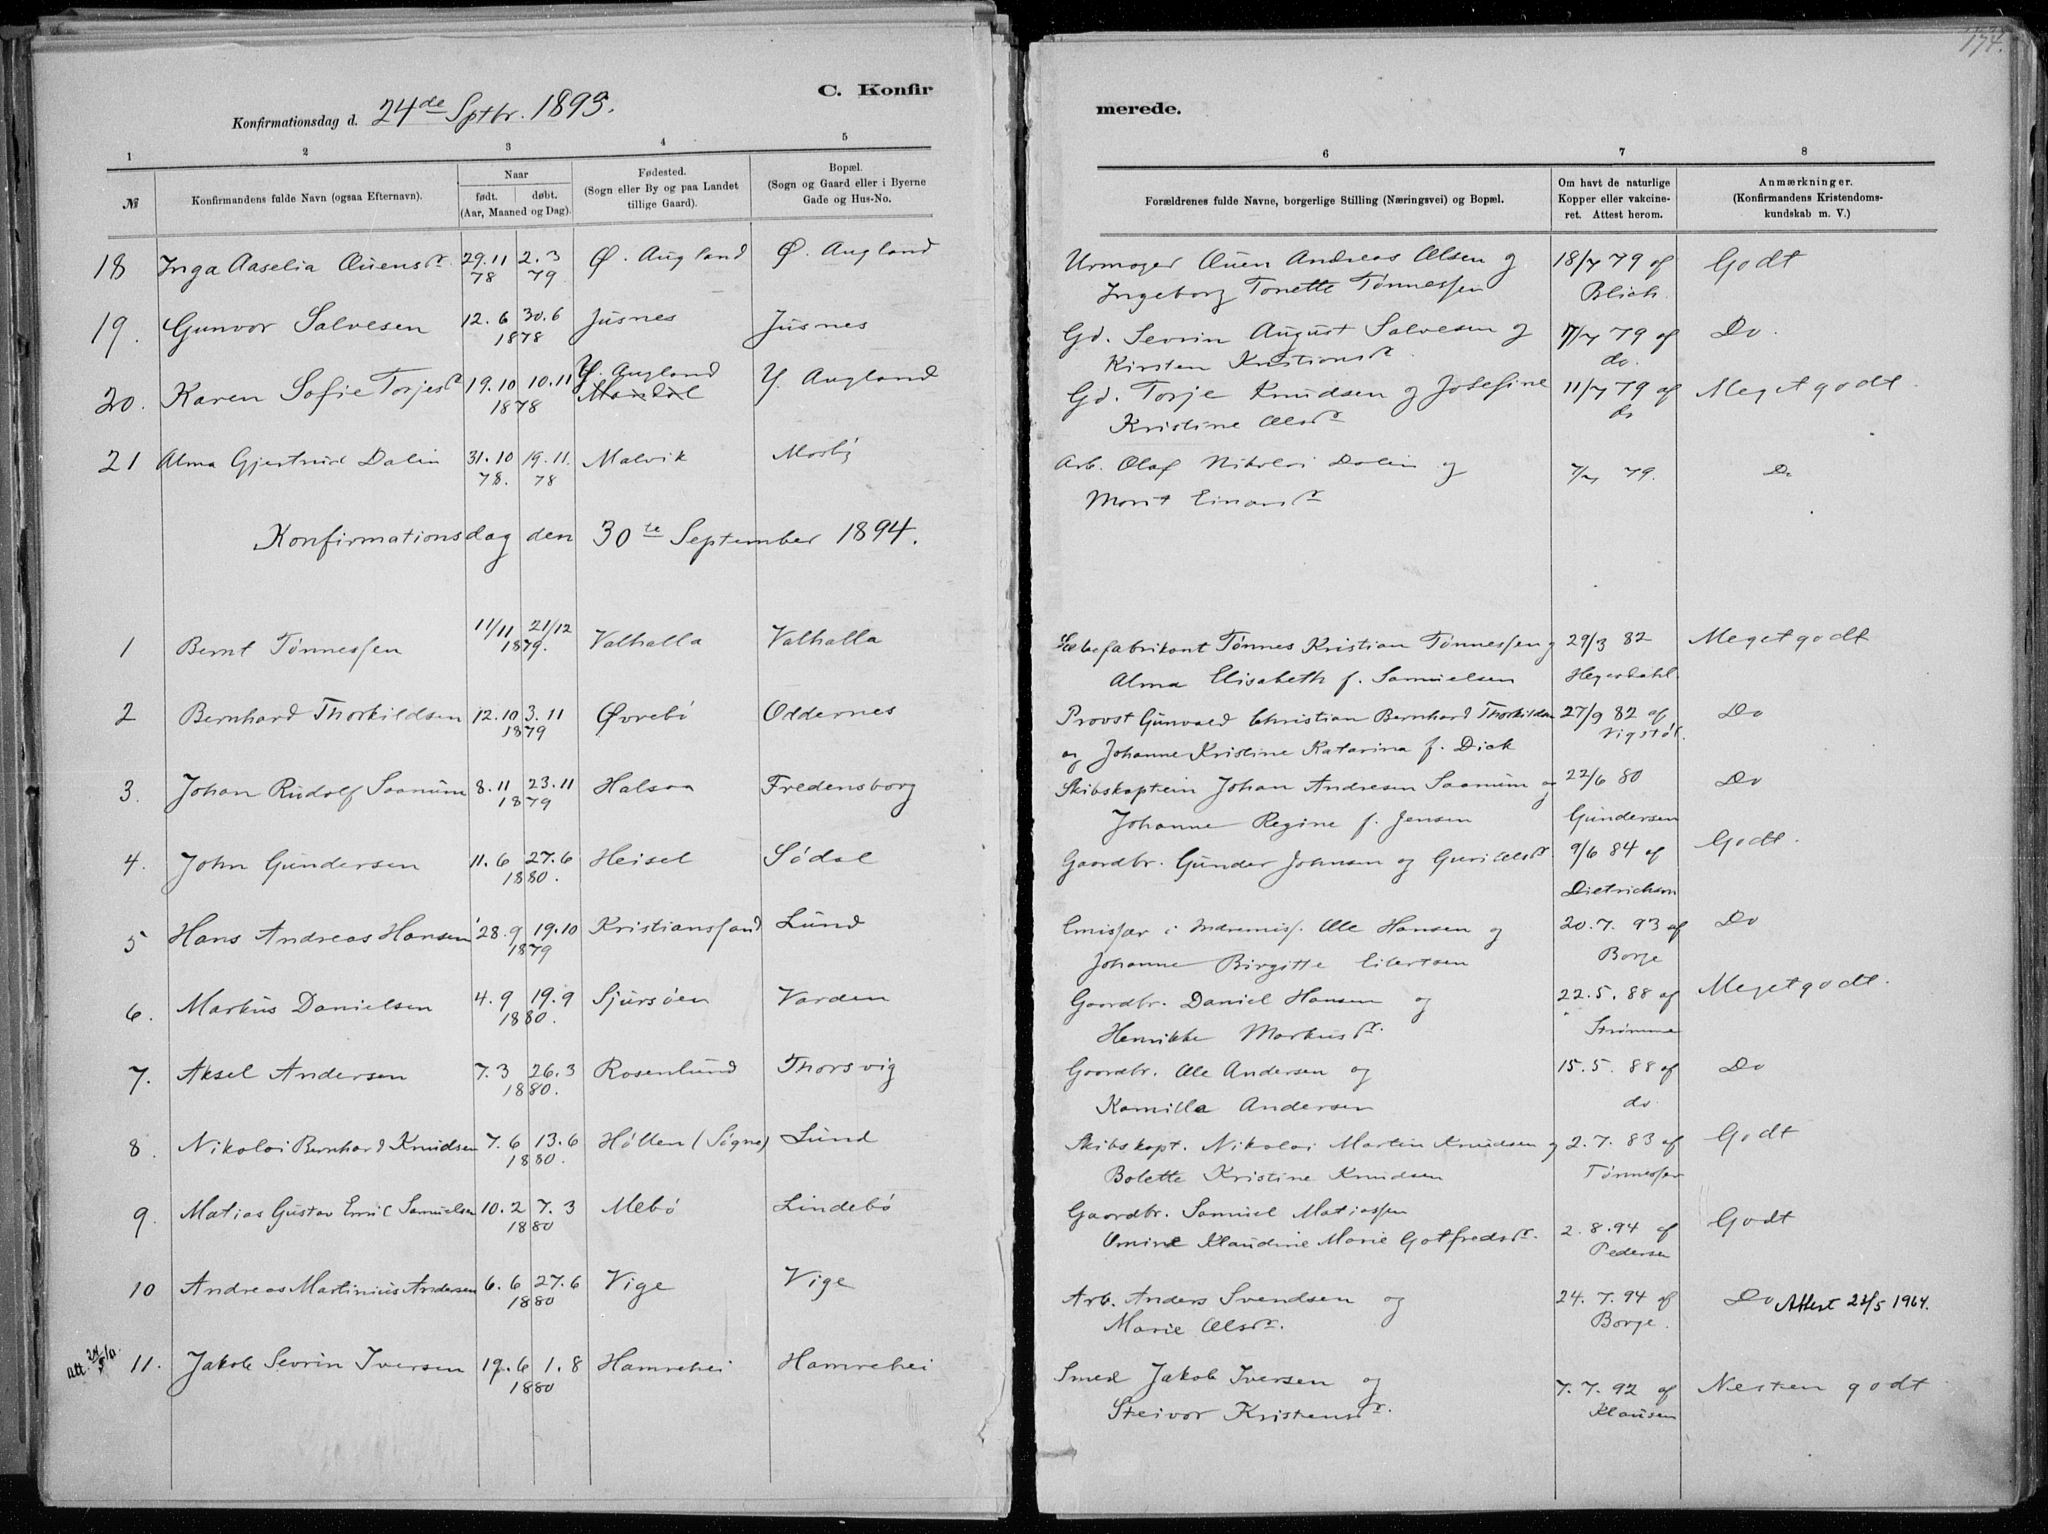 174.
C. Konfir
merede.
Konfirmationsdag d. 24de Sptbr. 1893.
1 2 3 4 5 6 7 8
№
Konfirmandens fulde Navn (ogsaa Efternavn).
Naar
født. døbt.
(Aar, Maaned og Dag).
Fødested.
(Sogn eller By og paa Landet
tillige Gaard).
Bopæl.
(Sogn og Gaard eller i Byerne
Gade og Hus-No.
Forældrenes fulde Navne, borgerlige Stilling (Næringsvei) og Bopæl.
Om havt de naturlige
Kopper eller vakcine-
ret. Attest herom.
Anmærkninger.
(Konfirmandens Kristendoms-
kundskab m. V.)
18 Inga Aaselia Ouensdr. 29.11 2.3 Ø. Augland Ø. Augland Urmager Ouen Andreas Olsen og 18/7 79 af Godt
78 79 Ingeborg Tonette Tønnessen Blich.
19. Gunvor Salvesen 12.6 30.6 Jusnes Jusnes Gd. Sevrin August Salvesen og 7/7 79 af Do.
1878 Kirsten Kristiansdr. do.
20. Karen Sofie Torjesdr 19.10 10.11 Y. Augland Y. Augland Gd. Torje Knudsen og Josefine 11/7 79 af Meget godt
1878 Mandal Kristine Olsdr do
21 Alma Gjertrud Dalin 31.10 19.11. Malvik Mosby Arb. Olaf Nikolai Dalin og 7/7 79. Do
78. 78 Morit Einarsdr
Konfirmationsdag den 30te September 1894.
1 Bernt Tønnessen 11/11 21/12 Valhalla Valhalla Sæbefabrikant Tønnes Kristian Tønnessen og 29/3 82 Meget godt
1879. Alma Elisabeth f. Samuelsen Hegerdahl.
2 Bernhard Thorkildsen 12.10 3.11 Øvrebø Oddernes Provst Gunvald Christian Bernhard Thorkildsen 27/9 82 af Do
1879 og Johanne Kristine Katarina f. Dick Vigstøl.
3. Johan Rudolf Saanum 8.11 23.11 Halsaa Fredensborg Skibskaptein Johan Andresen Saanum og 22/6 80 Do
1879 Johanne Regine f. Jensen Gundersen
4. John Gundersen 11.6 27.6 Heisel Sødal Gaardbr. Gunder Johnsen og Guri Olsdr. 9/6 84 af Godt.
1880. Dietrichson
5 Hans Andreas Hansen 28.9 19.10 Kristianssand Lund Emissær i Indremiss. Ole Hansen og 20.7.93 af Do
1879 Johanne Birgitte Eilertsen Borge
6. Markus Danielsen 4.9 19.9 Sjursøen Varden Gaardbr. Daniel Hansen og 22.5.88 af Meget godt.
1880. Henrikke Markusdr. Strømme
7. Aksel Andersen 7.3 26.3 Rosenlund Thorsvig Gaardbr. Ole Andersen og 15.5.88 af Do
1880. Kamilla Andersen do
8. Nikolai Bernhard Knudsen 7.6 13.6 Høllen (Søgne) Lund Skibskapt. Nikolai Martin Knudsen og 2.7.83 af Godt
1880. Bolette Kristine Knudsen Tønnessen
9. Matias Gustav Emil Samuelsen 10.2 7.3 Mebø Lindebø Gaardbr. Samuel Matiassen Godt
1880 Omine Klaudine Marie Gotfredsdr. 2.8.94 af
Pedersen
10 Andreas Martinius Andersen 6.6 27.6 Vige Vige Arb. Anders Svendsen og 24.7.94 af Do Attest 22/5 1964.
1880 Marie Olsdr. Borge.
att. 11. Jakob Sevrin Iversen 19.6 1.8 Hamrehei Hamrehei Smed Jakob Iversen og 7.7.92 af Nesten godt
1880 Steivor Kristensdr. Klausen